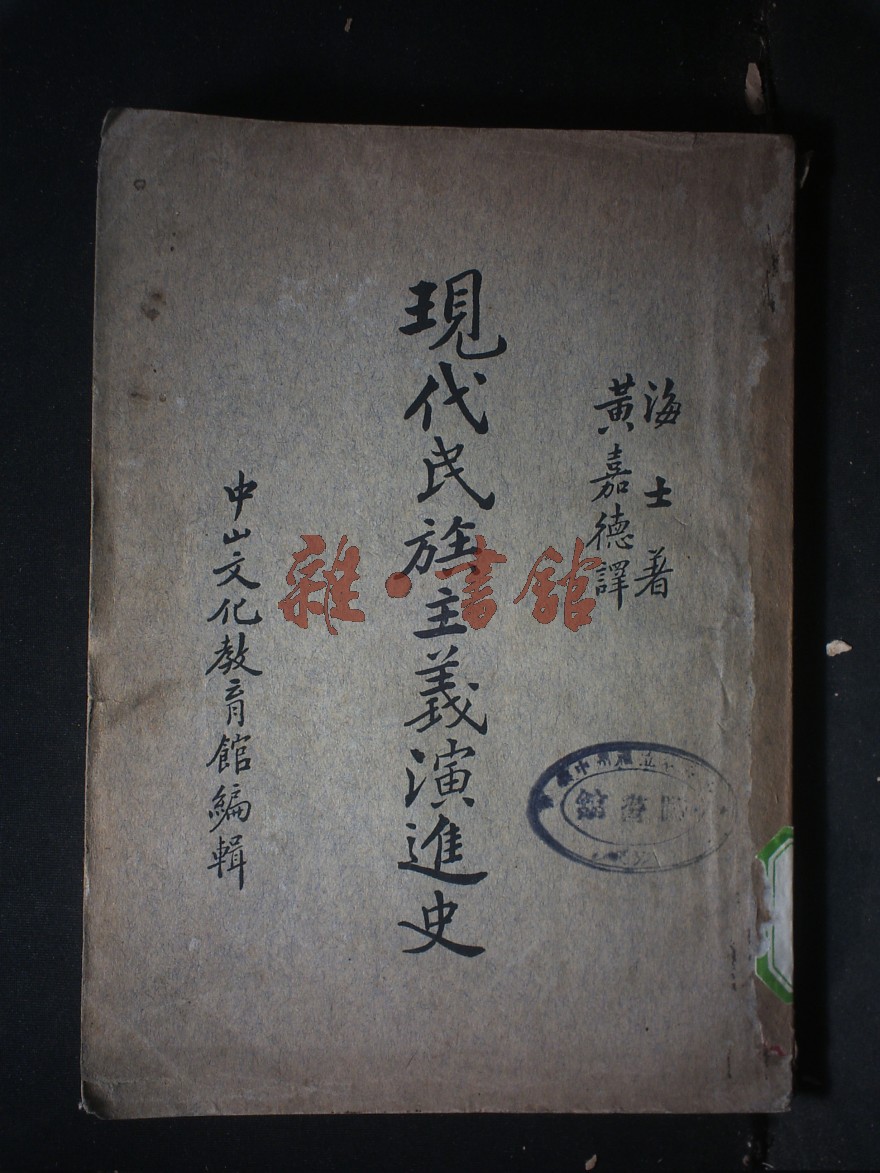 海士著
黃嘉德譯
現代民族主義演進史
中山文化教育館編輯
雜·書館